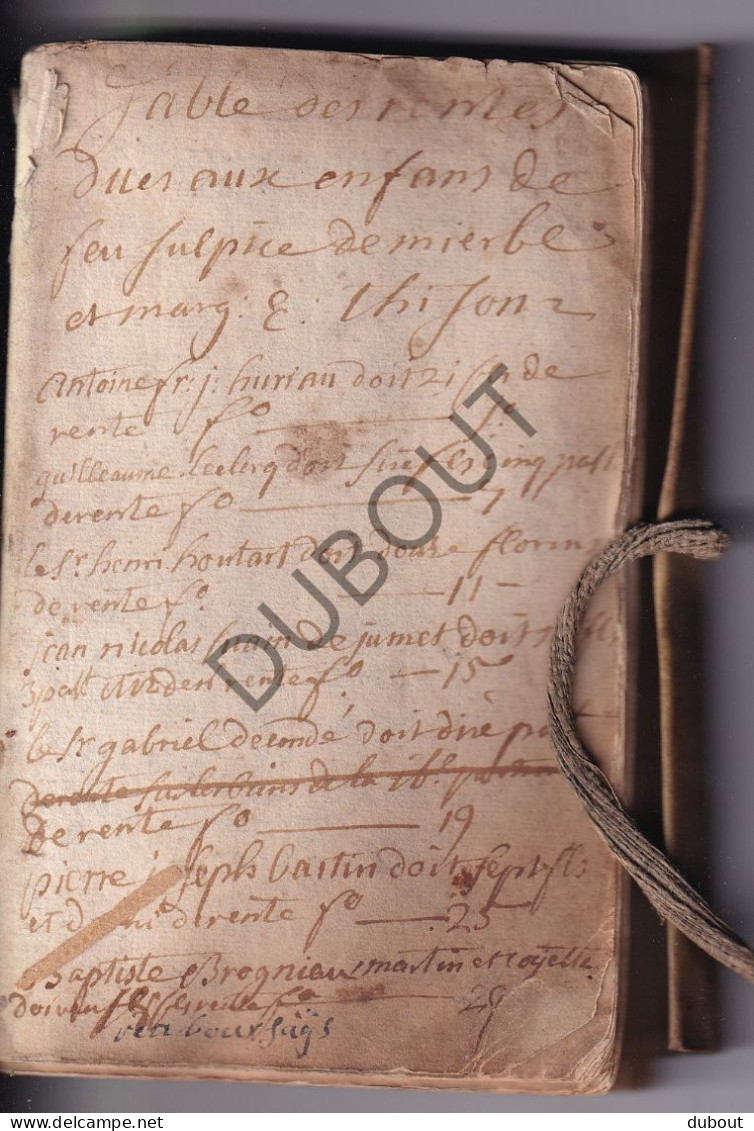 Table des rentes
dues aux enfans de
feu sulpice demierbe
et marg: E: thison
antoine fr: j: huriau doit 21 de
rente fo
guilleaume leclerq doit
de rente fo 7
le sr henri houtart doit douze florins
de rente fo 11
jean nicolas de jumet doit
3 patt et 12 den rente fo 15
le sr gabriel decondé doit dix patt
de rente
de rente fo 19
pierre joseph bastin doit sept fls
et demi de rente fo 25
Baptiste Brogniau martin et
rente fo
DUBOUT
dubout